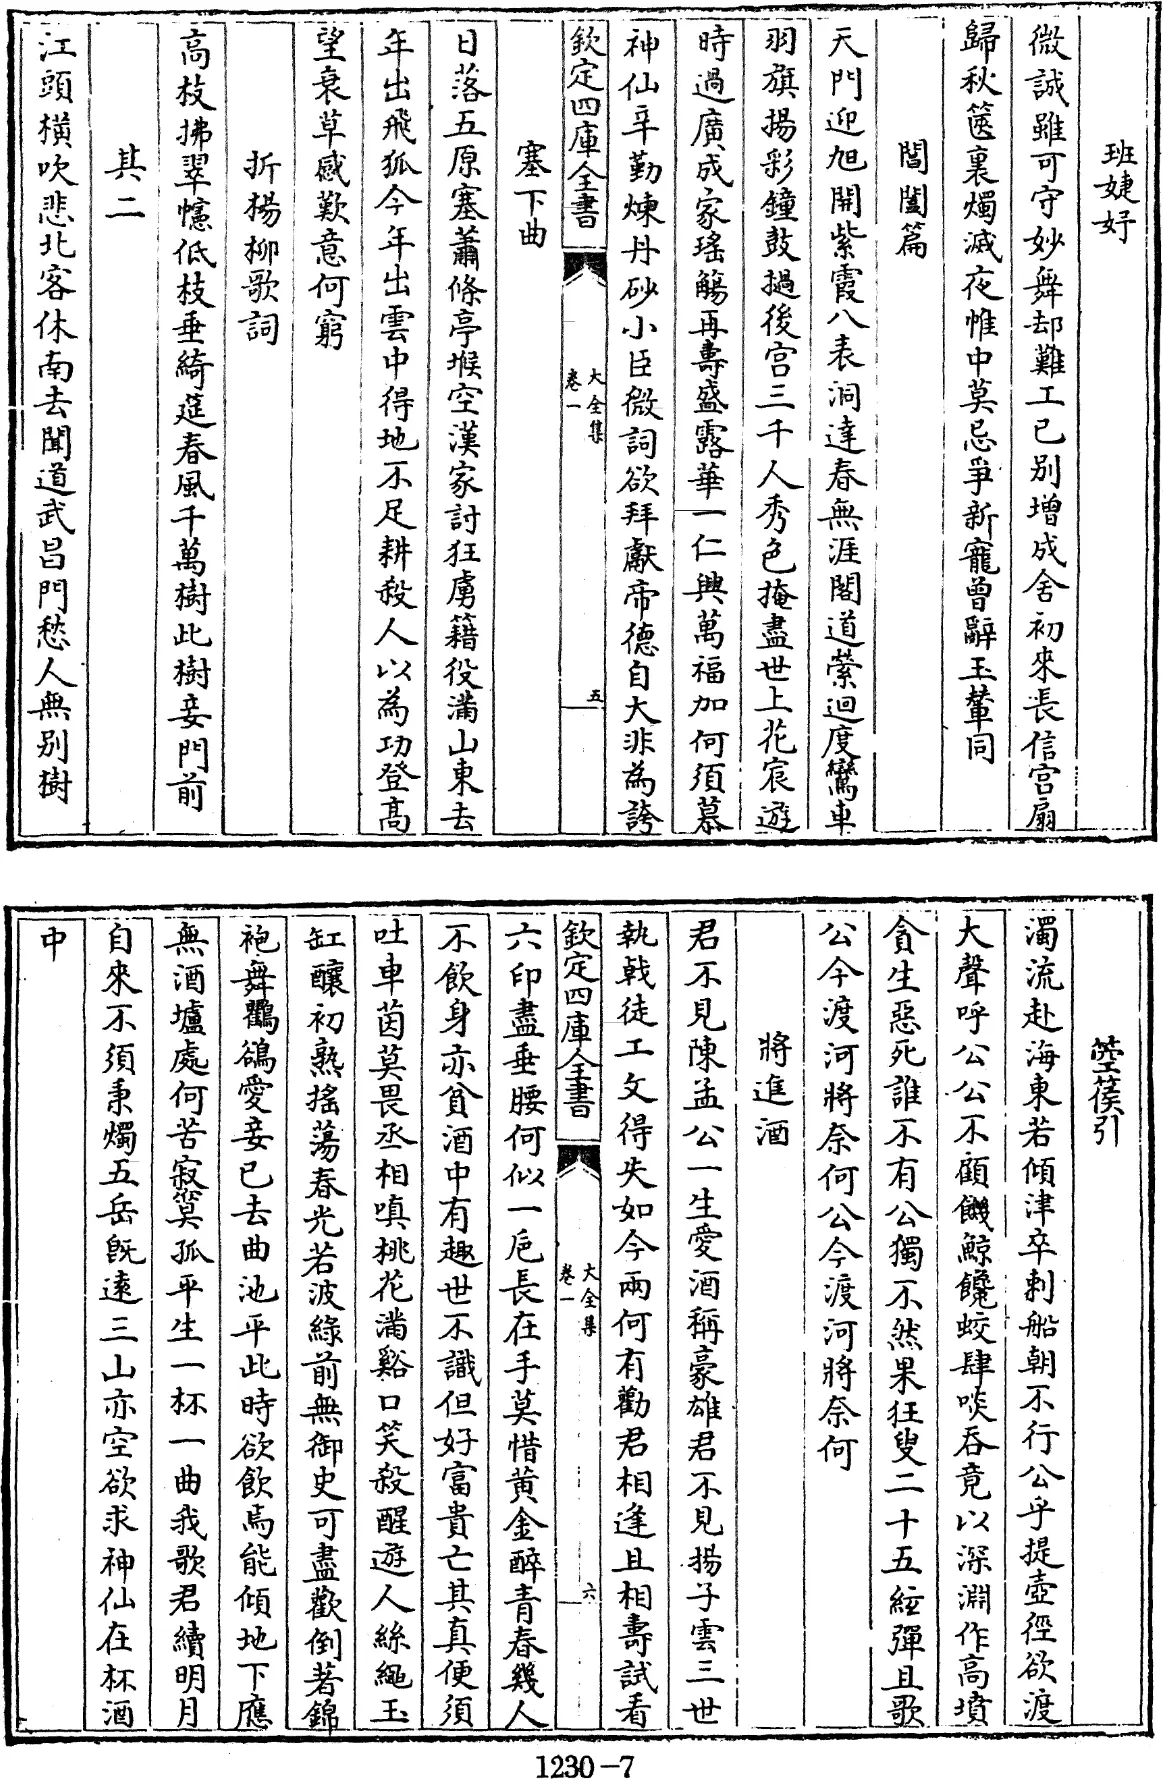 班婕妤
微誠雖可守妙舞却難工已别增成舍初來長信宫扇
歸秋篋裏燭滅夜帷中莫忌爭新寵曾辭玉輦同
閶闔篇
天門迎旭開紫霞八表洞達春無涯閣道縈迴度鸞車
羽旗揚彩鐘鼓撾後宫三千人秀色掩盡世上花宸遊
時過廣成家瑤觴再壽盛露華一仁興萬福加何須慕
神仙辛勤煉丹砂小臣微詞欲拜獻帝德自大非為誇
欽定四庫全書
大全集
卷一
五
塞下曲
日落五原塞蕭條亭堠空漢家討狂虜籍役滿山東去
年出飛狐今年出雲中得地不足耕殺人以為功登高
望衰草感歎意何窮
折楊柳歌詞
高枝拂翠幰低枝垂綺筵春風千萬樹此樹妾門前
其二
江頭横吹悲北客休南去聞道武昌門愁人無别樹
箜篌引
濁流赴海東若傾津卒刺船朝不行公乎提壺徑欲渡
大聲呼公公不顧饑鯨饞蛟肆啖吞竟以深淵作高墳
貪生惡死誰不有公獨不然果狂叟二十五絃彈且歌
公今渡河將奈何公今渡河將奈何
將進酒
君不見陳孟公一生愛酒稱豪雄君不見揚子雲三世
執戟徒工文得失如今兩何有勸君相逢且相壽試看
欽定四庫全書
大全集
卷一
六
六印盡垂腰何似一巵長在手莫惜黄金醉青春幾人
不飲身亦貧酒中有趣世不識但好富貴亡其真便須
吐車茵莫畏丞相嗔桃花滿谿口笑殺醒遊人絲繩玉
缸釀初熟搖蕩春光若波綠前無御史可盡歡倒著錦
袍舞鸜鵒愛妾已去曲池平此時欲飲焉能傾地下應
無酒壚處何苦寂寞孤平生一杯一曲我歌君續明月
自來不須秉燭五岳既遠三山亦空欲求神仙在杯酒
中
1230-7